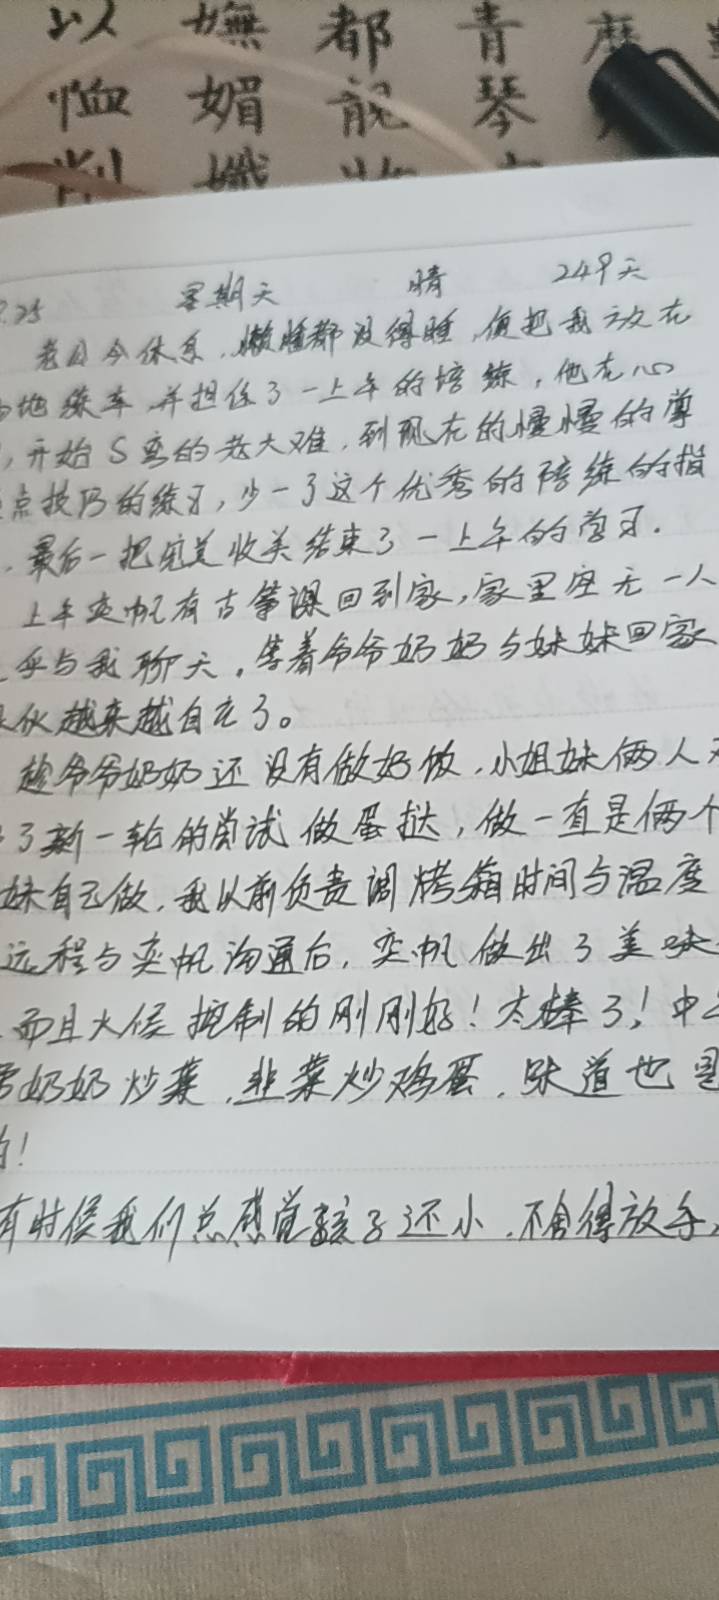 以 嫵 都 青
恤 媚 靚 琴
削 孅 妝
.25 星期天 晴 249天
老公今休息,懒睡都没得睡,便把我放在
地练车,并担任了一上午的陪练,他在心
,开始S弯的老大难,到现在的慢慢的掌
点技巧的练习,少一了这个优秀的陪练的指
.最后一把完美收关结束了一上午的学习.
上午奕帆有古筝课回到家,家里空无一人
乎与我聊天,等着爷爷奶奶与妹妹回家
伙越来越自立了。
趁爷爷奶奶还没有做好饭,小姐妹俩人
了新一轮的尝试做蛋挞,做一直是俩个
妹自己做,我以前负责调烤箱时间与温度
远程与奕帆沟通后,奕帆做出了美味
而且火候控制的刚刚好!太棒了!中午
奶奶炒菜,韭菜炒鸡蛋,味道也是
的!
有时候我们总感觉孩子还小,不舍得放手,